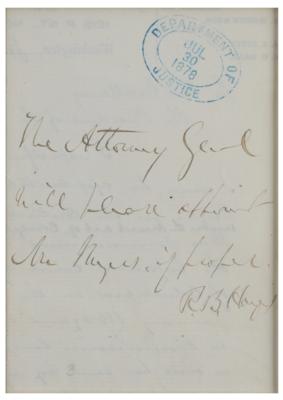 DEPARTMENT OF
JUL
30
1878
JUSTICE
The Attorney Genl
will please appoint
Mr Myers, if proper.
R. B. Hayes
3